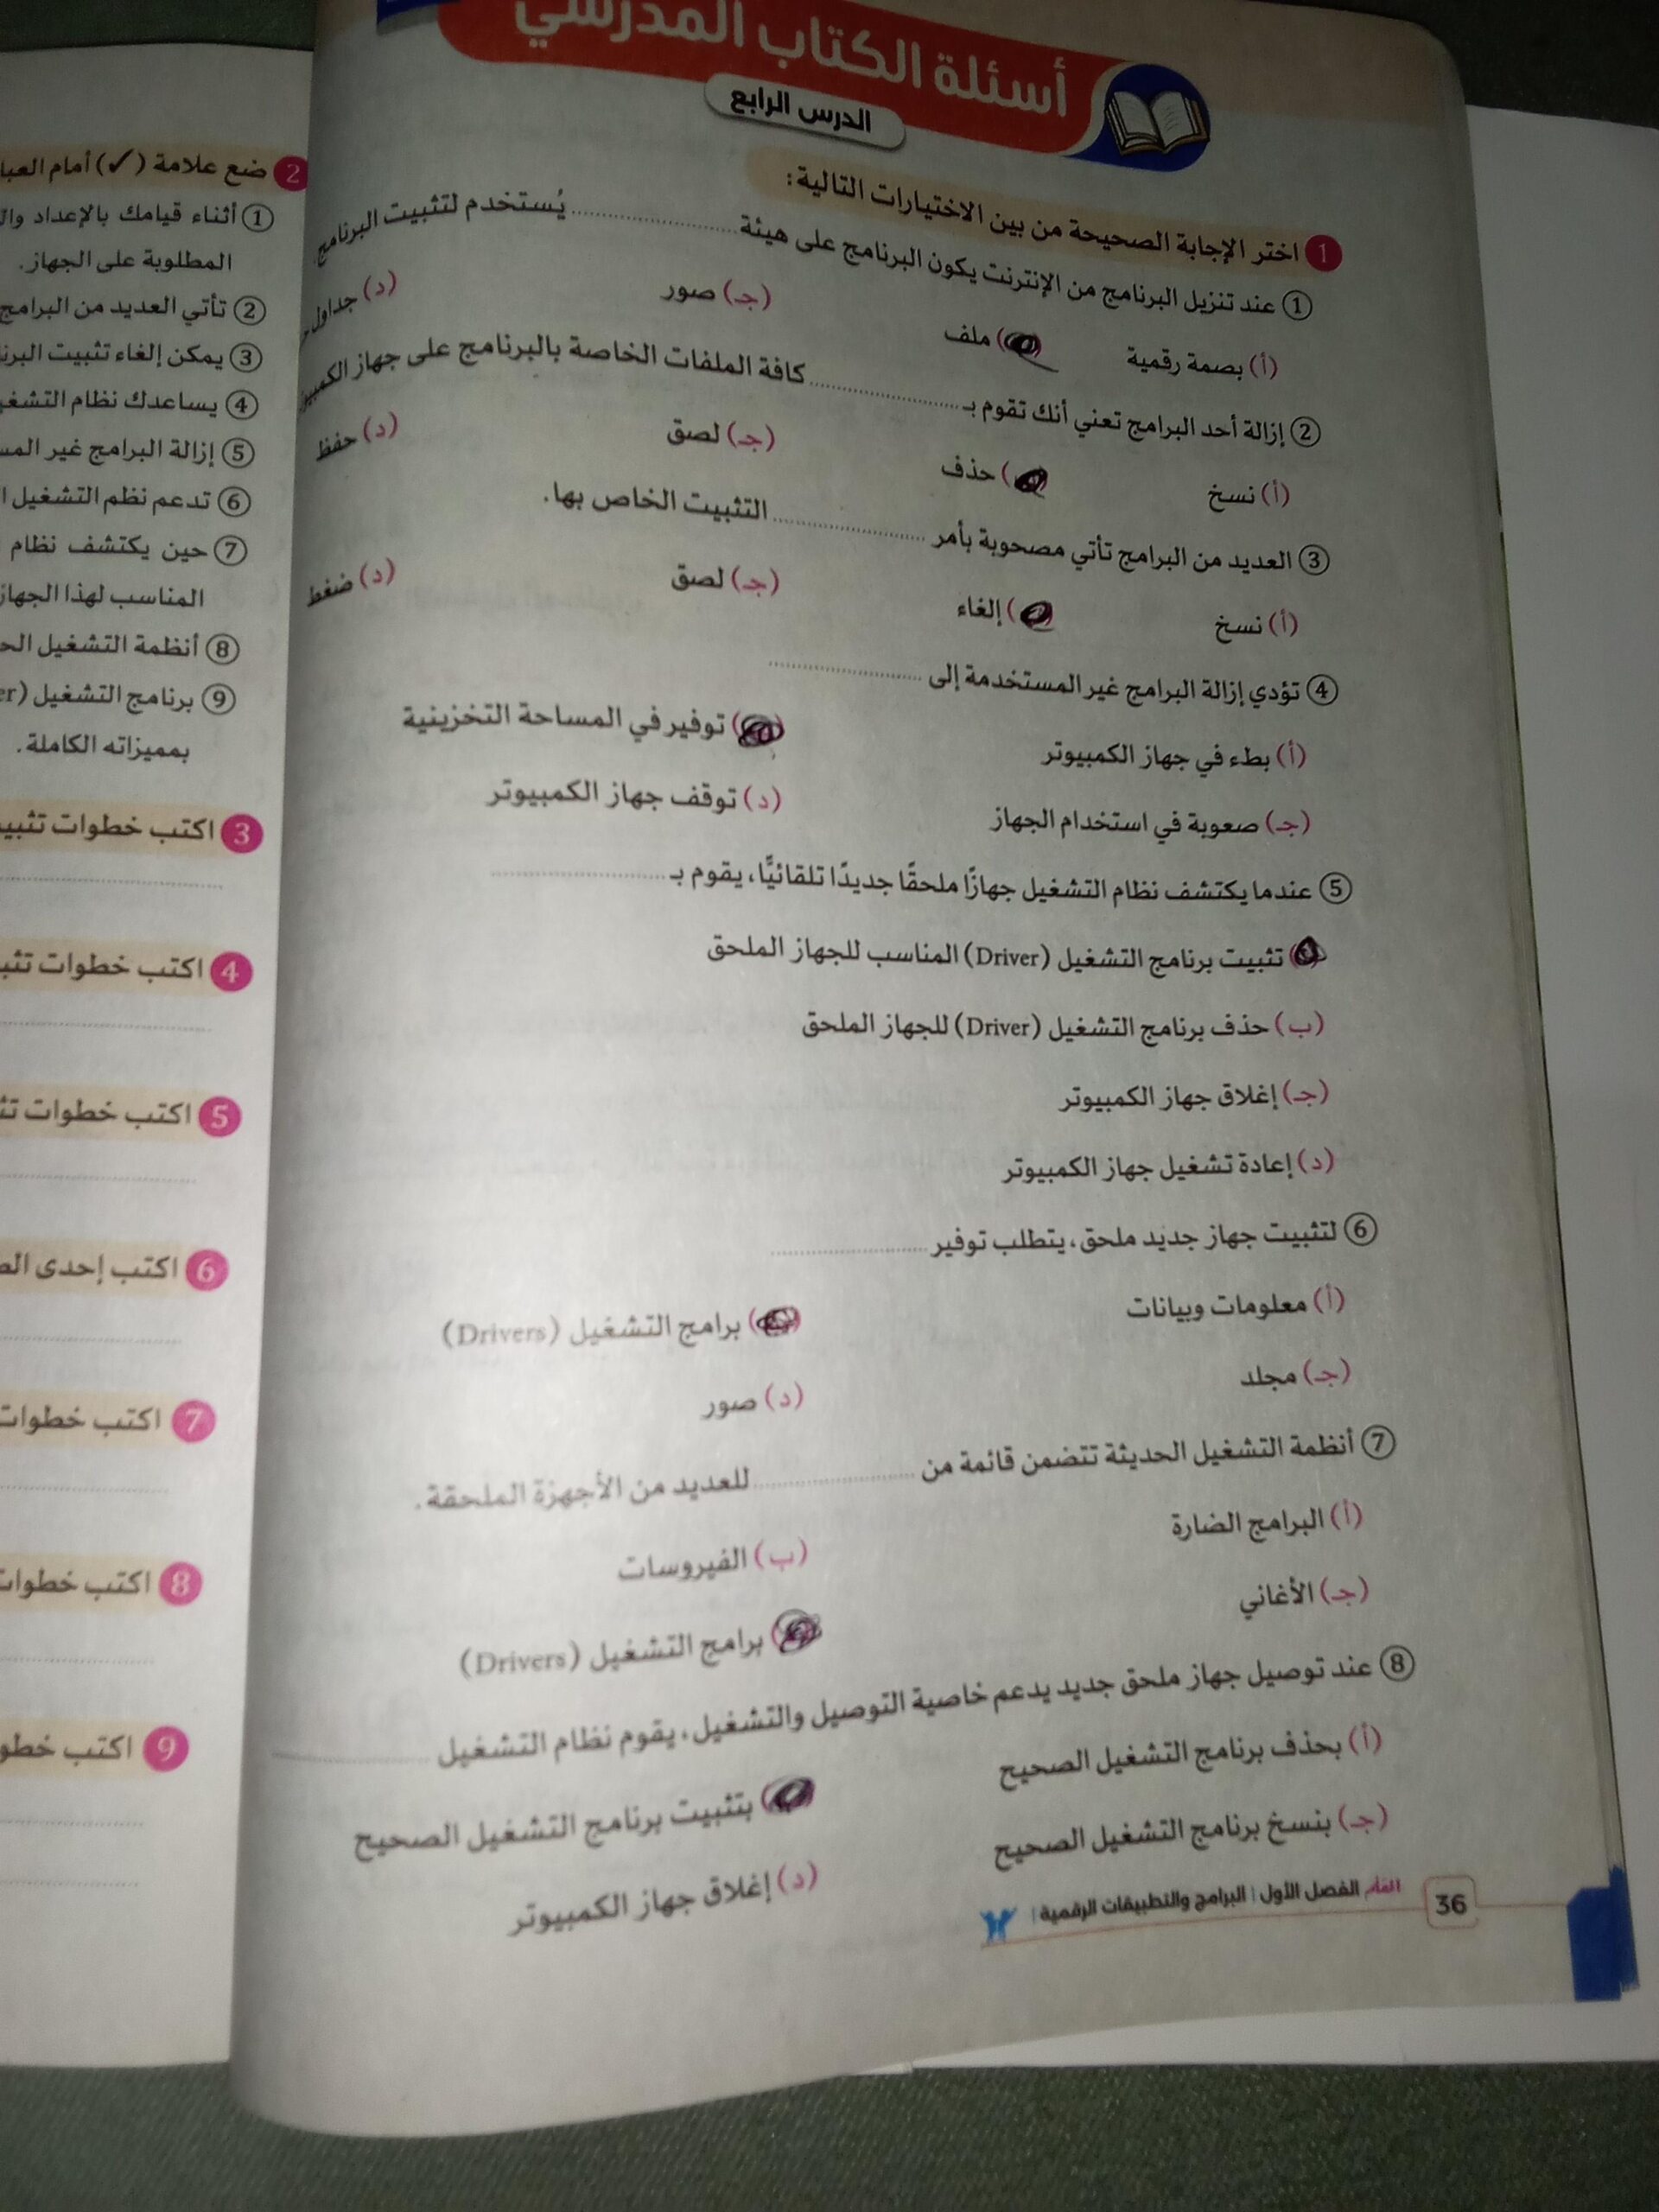 أسئلة الكتاب المدرسي
الدرس الرابع
1 اختر الإجابة الصحيحة من بين الاختيارات التالية:
① عند تنزيل البرنامج من الإنترنت يكون البرنامج على هيئة .................... يُستخدم لتثبيت البرنامج
(أ) بصمة رقمية ) ملف (جـ) صور (د) جداول
② إزالة أحد البرامج تعني أنك تقوم بـ .................... كافة الملفات الخاصة بالبرنامج على جهاز
(أ) نسخ ) حذف (جـ) لصق (د) حفظ
③ العديد من البرامج تأتي مصحوبة بأمر .................... التثبيت الخاص بها.
(أ) نسخ ) إلغاء (جـ) لصق (د) ضغط
④ تؤدي إزالة البرامج غير المستخدمة إلى ....................
(أ) بطء في جهاز الكمبيوتر ) توفير في المساحة التخزينية
(جـ) صعوبة في استخدام الجهاز (د) توقف جهاز الكمبيوتر
⑤ عندما يكتشف نظام التشغيل جهازًا ملحقًا جديدًا تلقائيًّا، يقوم بـ ....................
) تثبيت برنامج التشغيل (Driver) المناسب للجهاز الملحق
(ب) حذف برنامج التشغيل (Driver) للجهاز الملحق
(جـ) إغلاق جهاز الكمبيوتر
(د) إعادة تشغيل جهاز الكمبيوتر
⑥ لتثبيت جهاز جديد ملحق، يتطلب توفير ....................
(أ) معلومات وبيانات ) برامج التشغيل (Drivers)
(جـ) مجلد (د) صور
⑦ أنظمة التشغيل الحديثة تتضمن قائمة من .................... للعديد من الأجهزة الملحقة.
(أ) البرامج الضارة (ب) الفيروسات
(جـ) الأغاني ) برامج التشغيل (Drivers)
⑧ عند توصيل جهاز ملحق جديد يدعم خاصية التوصيل والتشغيل، يقوم نظام التشغيل ....................
(أ) بحذف برنامج التشغيل الصحيح ) بتثبيت برنامج التشغيل الصحيح
(جـ) بنسخ برنامج التشغيل الصحيح (د) إغلاق جهاز الكمبيوتر
36 الفصل الأول | البرامج والتطبيقات الرقمية |
2 ضع علامة (✓) أمام
① أثناء قيامك بالإعداد
المطلوبة على الجهاز.
② تأتي العديد من البرامج
③ يمكن إلغاء تثبيت
④ يساعدك نظام
⑤ إزالة البرامج غير
⑥ تدعم نظم التشغيل
⑦ حين يكتشف نظام
المناسب لهذا الجهاز
⑧ أنظمة التشغيل
⑨ برنامج التشغيل
بمميزاته الكاملة.
3 اكتب خطوات
4 اكتب خطوات
5 اكتب خطوات
6 اكتب إحدى
7 اكتب خطوات
8 اكتب خطوات
9 اكتب